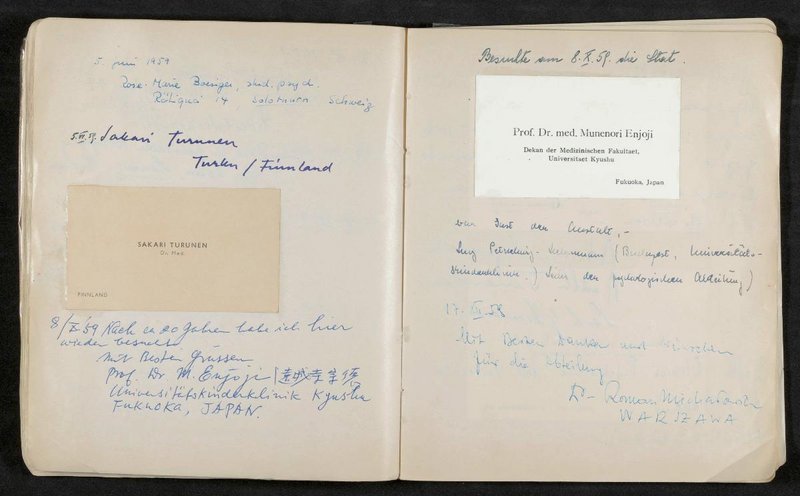 5. Juni 1959
Rose-Marie Boesiger, stud. psych.
14 Solothurn Schweiz
Sakari Turunen
Turku / Finnland
SAKARI TURUNEN
Dr. Med.
FINNLAND
8/X '59 Nach ca 20 Jahren habe ich hier
wieder besucht
mit Besten Grüssen
Prof. Dr M. Enjoji 遠城寺宗徳
Universitätskinderklinik Kyushu
FUKUOKA, JAPAN.
Besuchte am 8. X. 59. die Stat.
Prof. Dr. med. Munenori Enjoji
Dekan der Medizinischen Fakultaet,
Universitaet Kyushu
Fukuoka, Japan
der Anstalt, -
(Budapest, Universitäts-
kinderklinik.) der pädagogischen Abteilung)
Mit Besten Danken und Wünschen
für die Abteilung.
Dr Roman
WARSZAWA